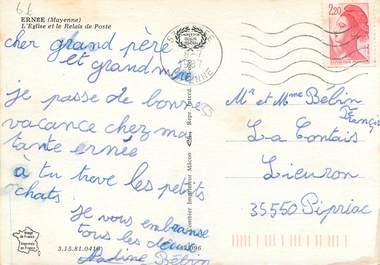 ERNEE (Mayenne)
L'Eglise et le Relais de Poste
cher grand père
et grand mère
je passe de bonne
vacance chez ma
tante ernée
à tu treve les petits
chats.
je vous embranse
tous les deux
Nadine Bébin
3.15.81.0416
Combier Imprimeur Mâcon
1987
2,20
Mr et Mme Bébin
François
La Contais
Lieuron
35550 Pipriac